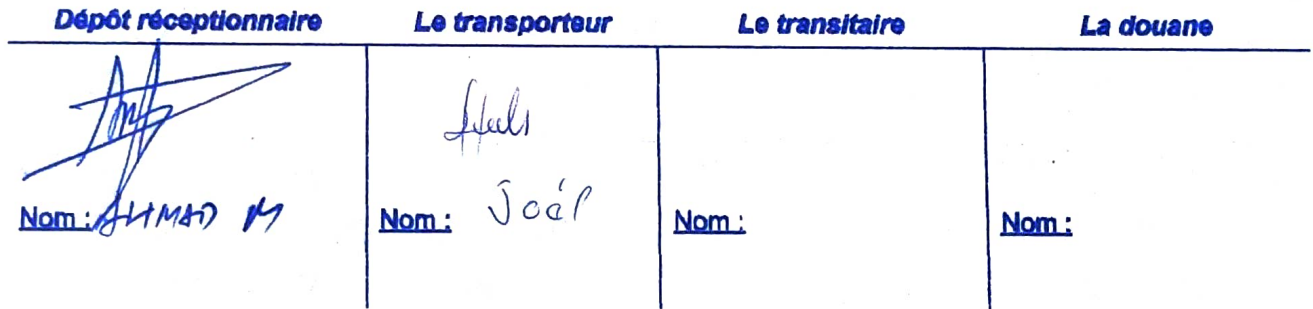 Dépôt réceptionnaire Le transporteur Le transitaire La douane
Nom : AHMAD M Nom : Joél Nom : Nom :